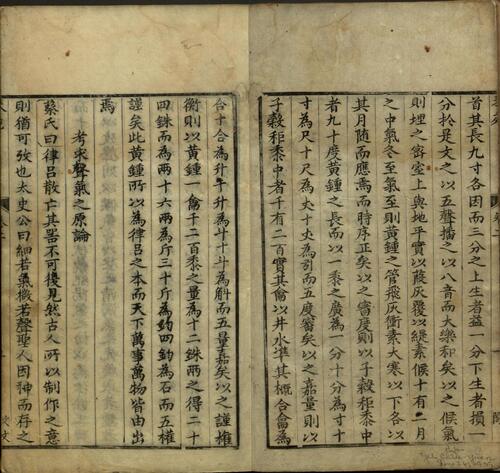 首其長九寸各因而三分之上生者益一分下生者損一
分於是文之以五聲播之以八音而大樂和矣以之候氣
則埋之密室上與地平實以葭灰覆以緹素候十有二月
之中氣冬至氣至則黃鍾之管飛灰衝素大寒以下各以
其月隨而應焉而時序正矣以之審度則以子穀秬黍中
者九十度黃鍾之長而以一黍之廣為一分十分為寸十
寸為尺十尺為丈十丈為引而五度審矣以之嘉量則以
子穀秬黍中者千有二百實其龠以井水準其概合龠為
合十合為升十升為斗十斗為斛而五量嘉矣以之謹權
衡則以黃鍾一龠千二百黍之量為十二銖兩之得二十
四銖而為兩十六兩為斤三十斤為鈞四鈞為石而五權
謹矣此黃鍾所以為律呂之本而天下萬事萬物皆由出
焉
考求聲氣之原論
蔡氏曰律呂散亡其器不可復見然古人所以制作之意
則猶可攷也太史公曰細若氣微若聲聖人因神而存之